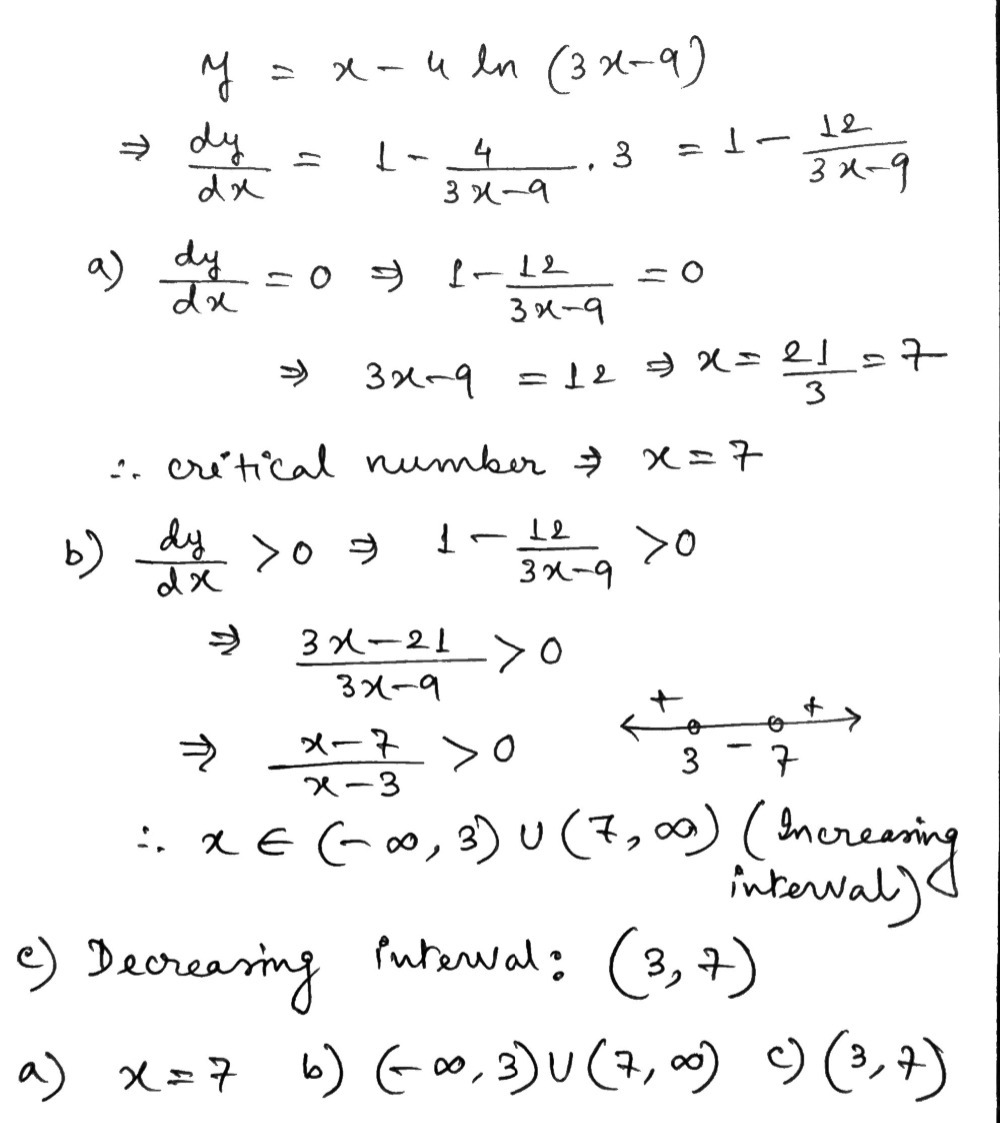 y = x - 4 ln (3x-9)
⇒ dy/dx = 1 - 4/(3x-9) . 3 = 1 - 12/(3x-9)
a) dy/dx = 0 ⇒ 1 - 12/(3x-9) = 0
⇒ 3x-9 = 12 ⇒ x = 21/3 = 7
∴ critical number ⇒ x = 7
b) dy/dx > 0 ⇒ 1 - 12/(3x-9) > 0
⇒ (3x-21)/(3x-9) > 0
⇒ (x-7)/(x-3) > 0
+ 3 - 7 +
∴ x ∈ (-∞, 3) ∪ (7, ∞) (Increasing
interval)
c) Decreasing interval: (3, 7)
a) x = 7 b) (-∞, 3) ∪ (7, ∞) c) (3, 7)